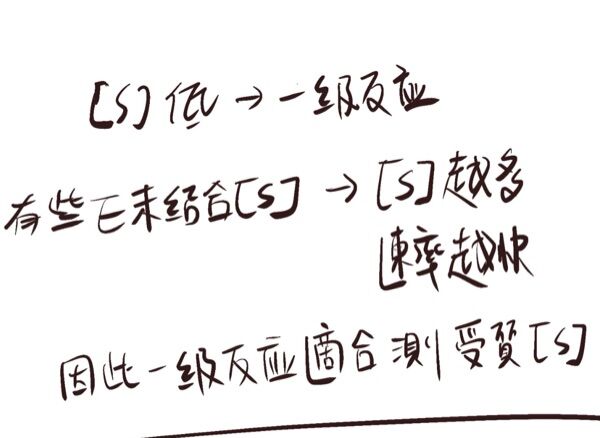 [S]低→一級反应
有些E未結合[S]→[S]越多
速率越快
因此一級反应適合測受質[S]